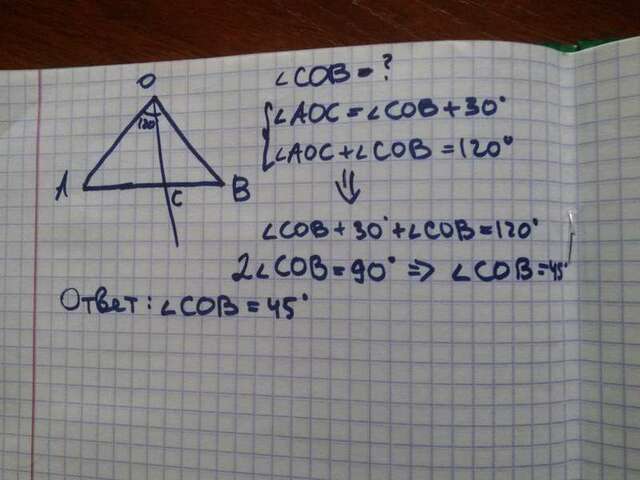 O
∠COB = ?
120°
∠AOC = ∠COB + 30°
∠AOC + ∠COB = 120°
A
C
B
⇓
∠COB + 30° + ∠COB = 120°
2∠COB = 90° ⇒ ∠COB = 45°
Ответ: ∠COB = 45°